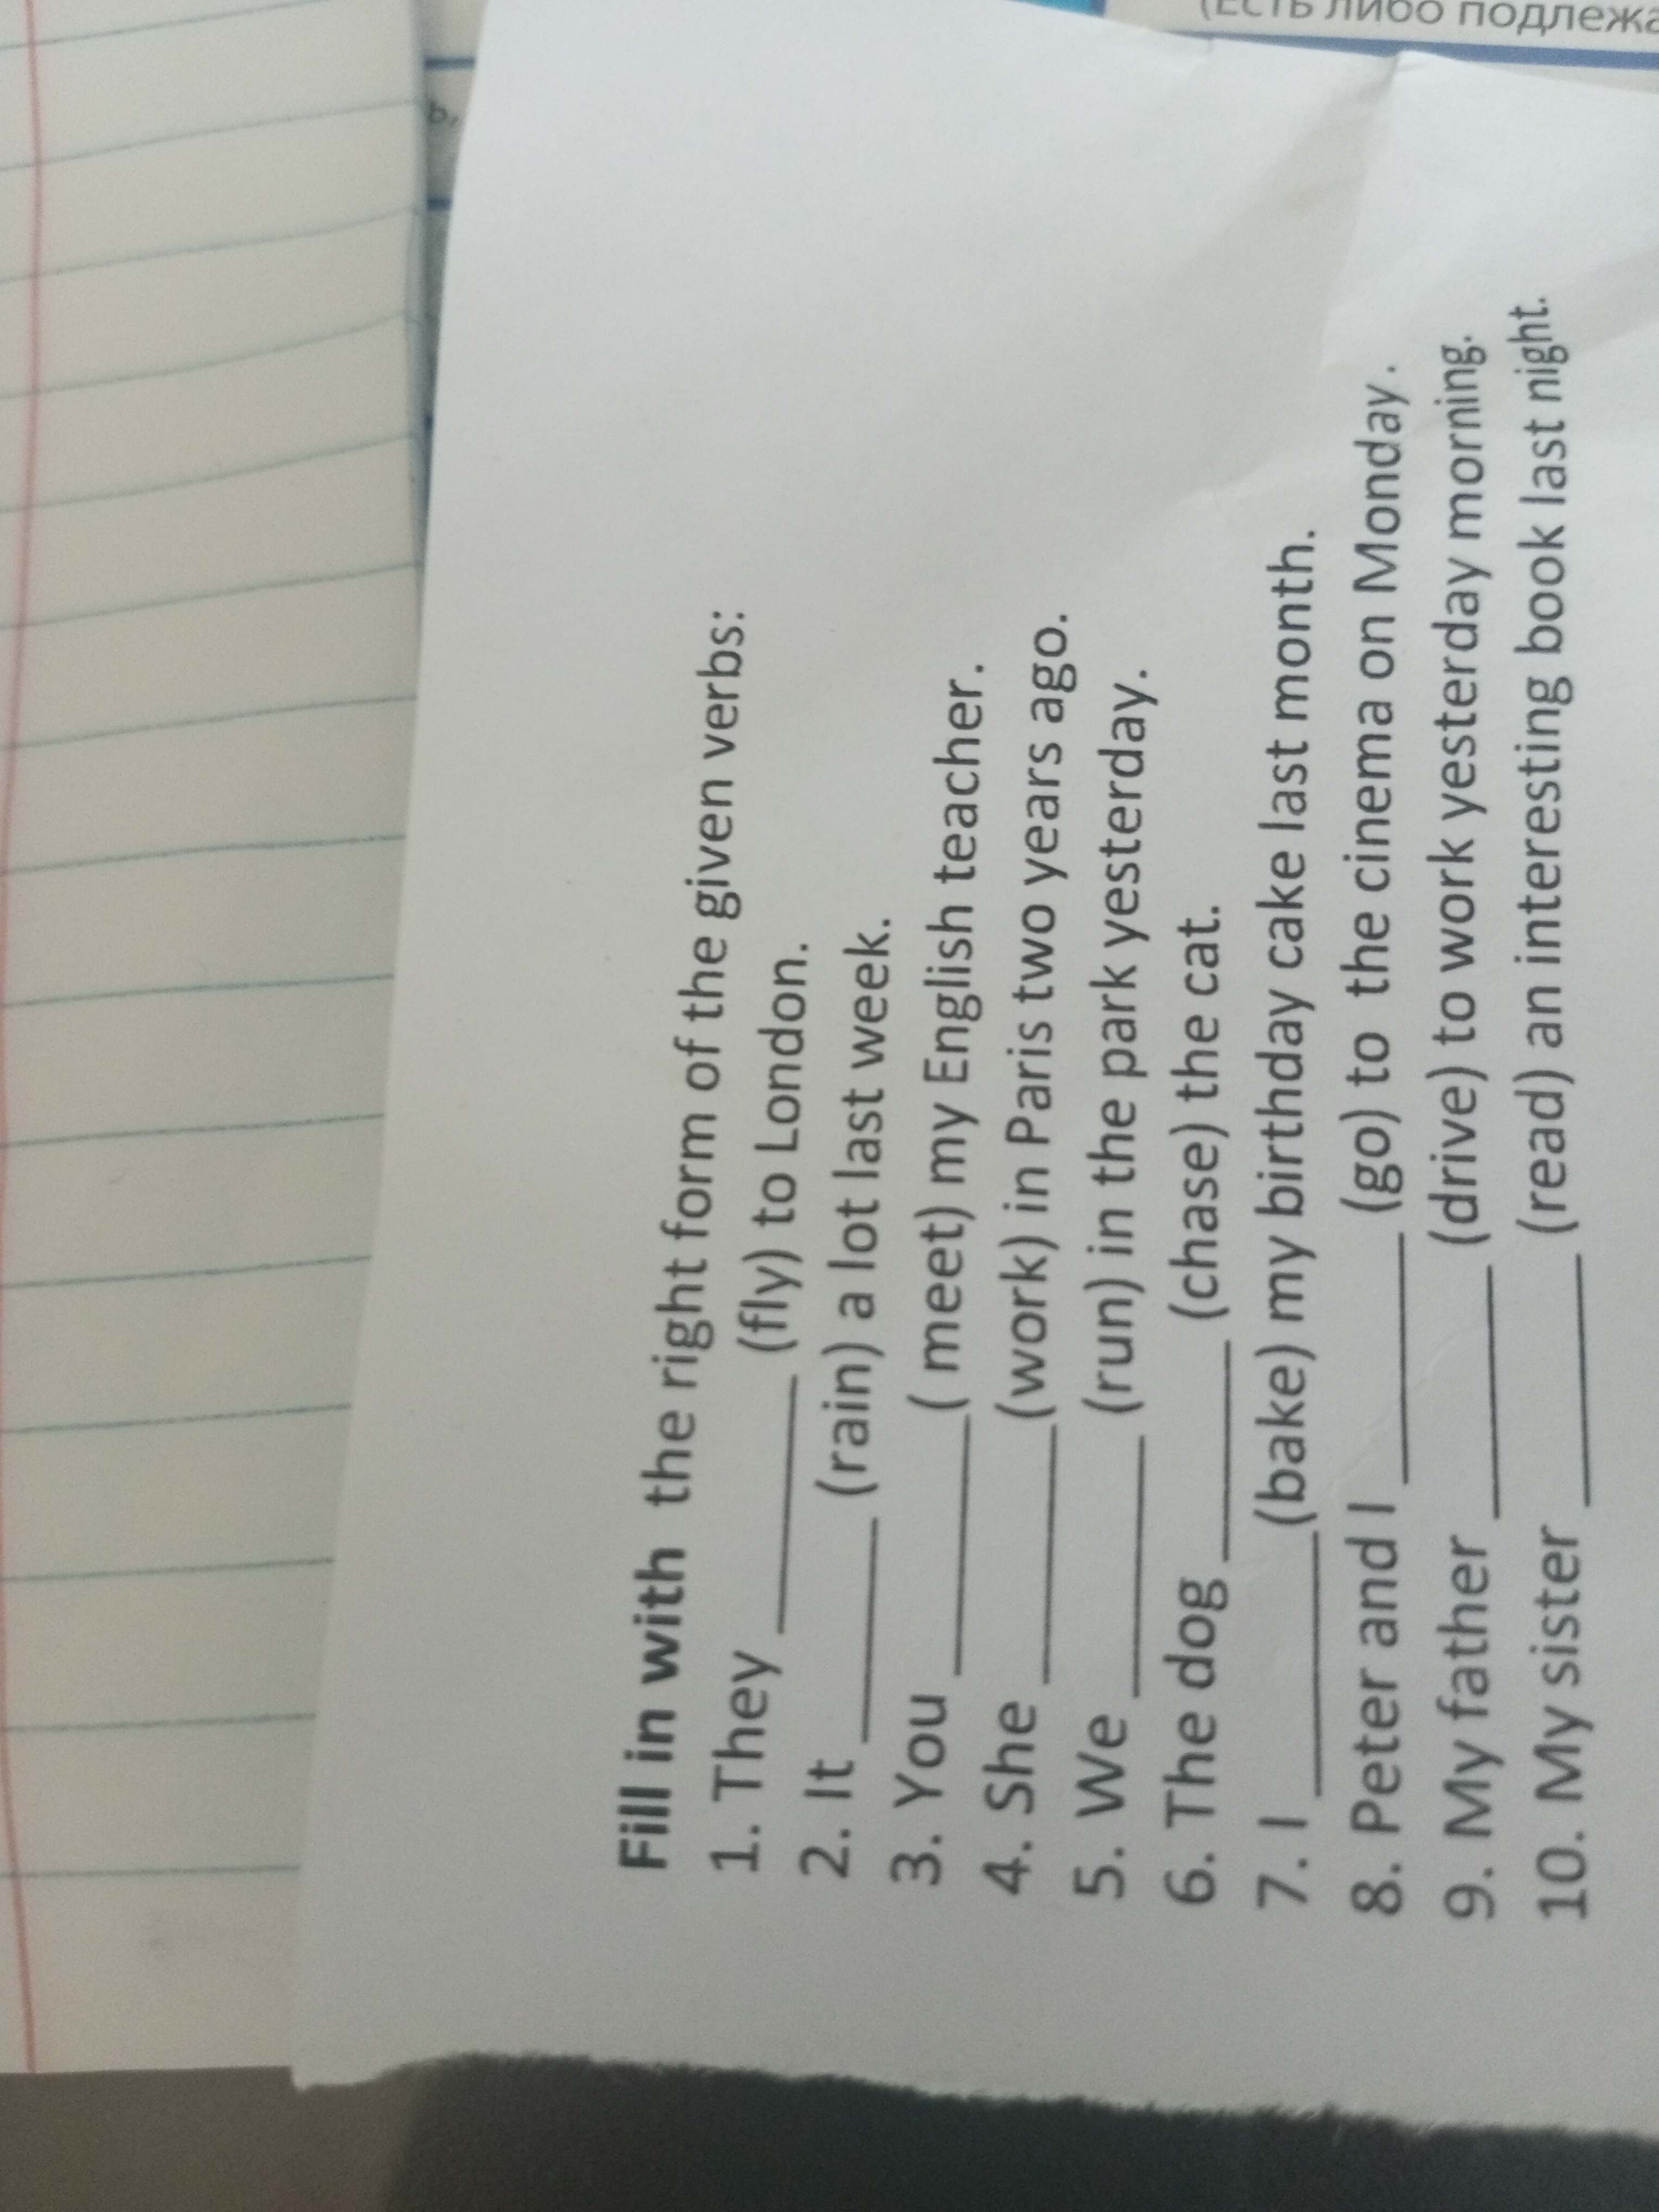 (Есть либо
ь,
Fill in with the right form of the given verbs:
1. They __________ (fly) to London.
2. It ________ (rain) a lot last week.
3. You __________( meet) my English teacher.
4. She __________(work) in Paris two years ago.
5. We __________ (run) in the park yesterday.
6. The dog ________ (chase) the cat.
7. I __________(bake) my birthday cake last month.
8. Peter and I __________ (go) to the cinema on Monday.
9. My father __________ (drive) to work yesterday morning.
10. My sister __________ (read) an interesting book last night.